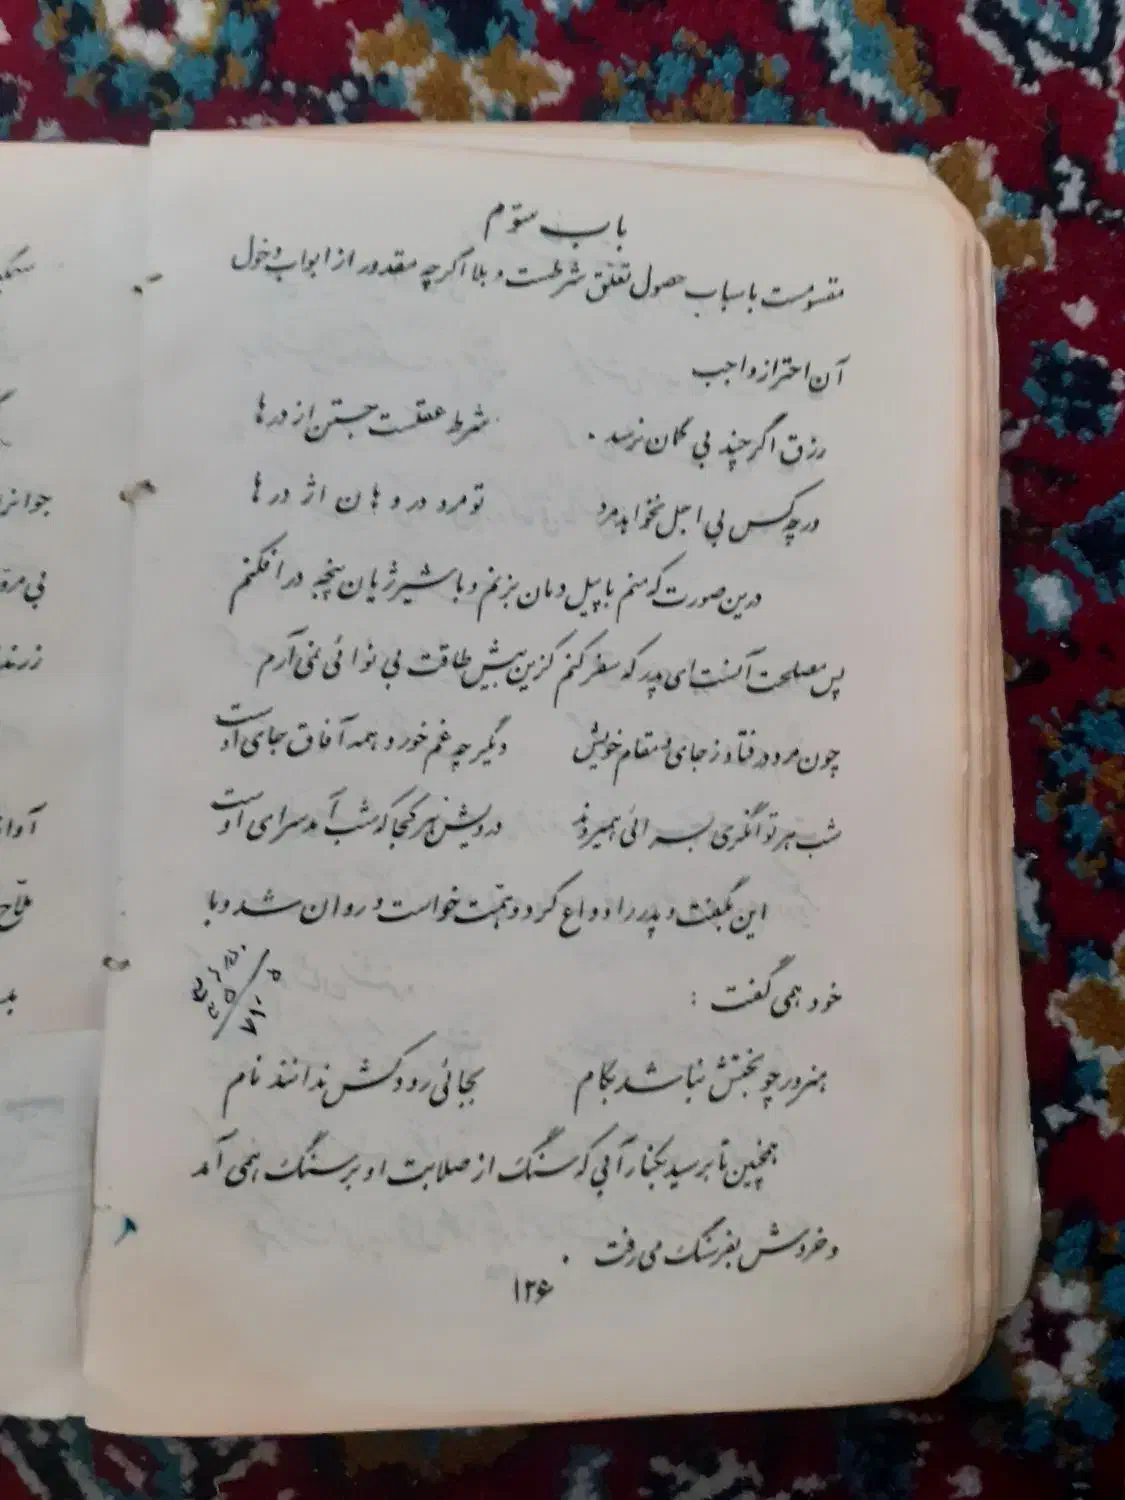 باب سوّم
مقسومست باسباب حصول تعلّق شرطست و بلا اگرچه مقدور از ابواب دخول
آن احتراز واجب
رزق اگر چند بی گمان برسد شرط عقلست جستن از درها
ورچه کس بی اجل نخواهد مرد تو مرو در دهان اژدرها
درین صورت که منم با پیل دمان بزنم و با شیر ژیان پنجه درافکنم
پس مصلحت آنست ای پدر که سفر کنم کزین بیش طاقت بی نوائی نمی‌آرم
چون مرد درفتاد ز جای و مقام خویش دیگر چه غم خورد همه آفاق جای اوست
شب هر توانگری بسرائی همیروند درویش هر کجا که شب آمد سرای اوست
این بگفت و پدر را وداع کرد و همّت خواست و روان شد و با
خود همی گفت :
هنرور چو بختش نباشد بکام بجائی رود کش ندانند نام
همچنین تا برسید بکنار آبی که سنگ از صلابت او بر سنگ همی آمد
و خروش بفرسنگ می‌رفت .
۱۲۶
جوانمر